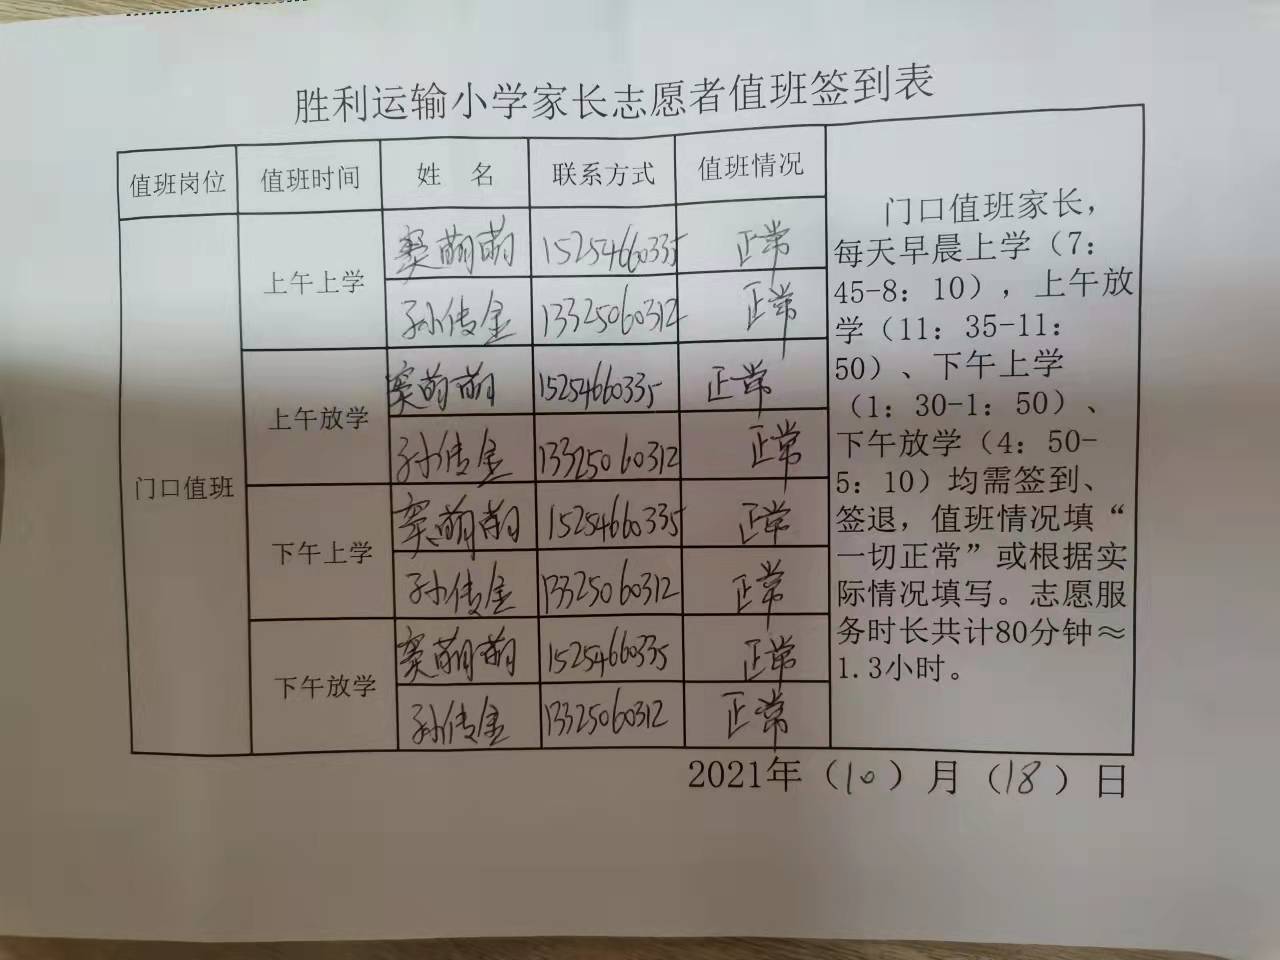 胜利运输小学家长志愿者值班签到表
值班岗位 值班时间 姓 名 联系方式 值班情况
门口值班
上午上学
窦萌萌 15254660335 正常
孙传金 13325060312 正常
上午放学
窦萌萌 15254660335 正常
孙传金 13325060312 正常
下午上学
窦萌萌 15254660335 正常
孙传金 13325060312 正常
下午放学
窦萌萌 15254660335 正常
孙传金 13325060312 正常
门口值班家长，
每天早晨上学（7：
45-8：10），上午放
学（11：35-11：
50）、下午上学
（1：30-1：50）、
下午放学（4：50-
5：10）均需签到、
签退，值班情况填“
一切正常”或根据实
际情况填写。志愿服
务时长共计80分钟≈
1.3小时。
2021年（10）月（18）日